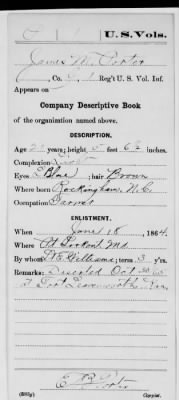 U.S. Vols.
James M. Porter
, Co. , 1 Reg't U.S. Vol. Inf.
Appears on
Company Descriptive Book
of the organization named above.
DESCRIPTION.
Age 21 years; height 5 feet 6½ inches.
Complexion
Eyes Blue; hair Brown
Where born Rockingham, N.C.
Occupation Farmer
ENLISTMENT.
When June 18, 1864.
By whom Williams; term 3 y'rs.
Remarks: Deserted Oct 30/65
at Fort Leavenworth, Kan
Copyist.